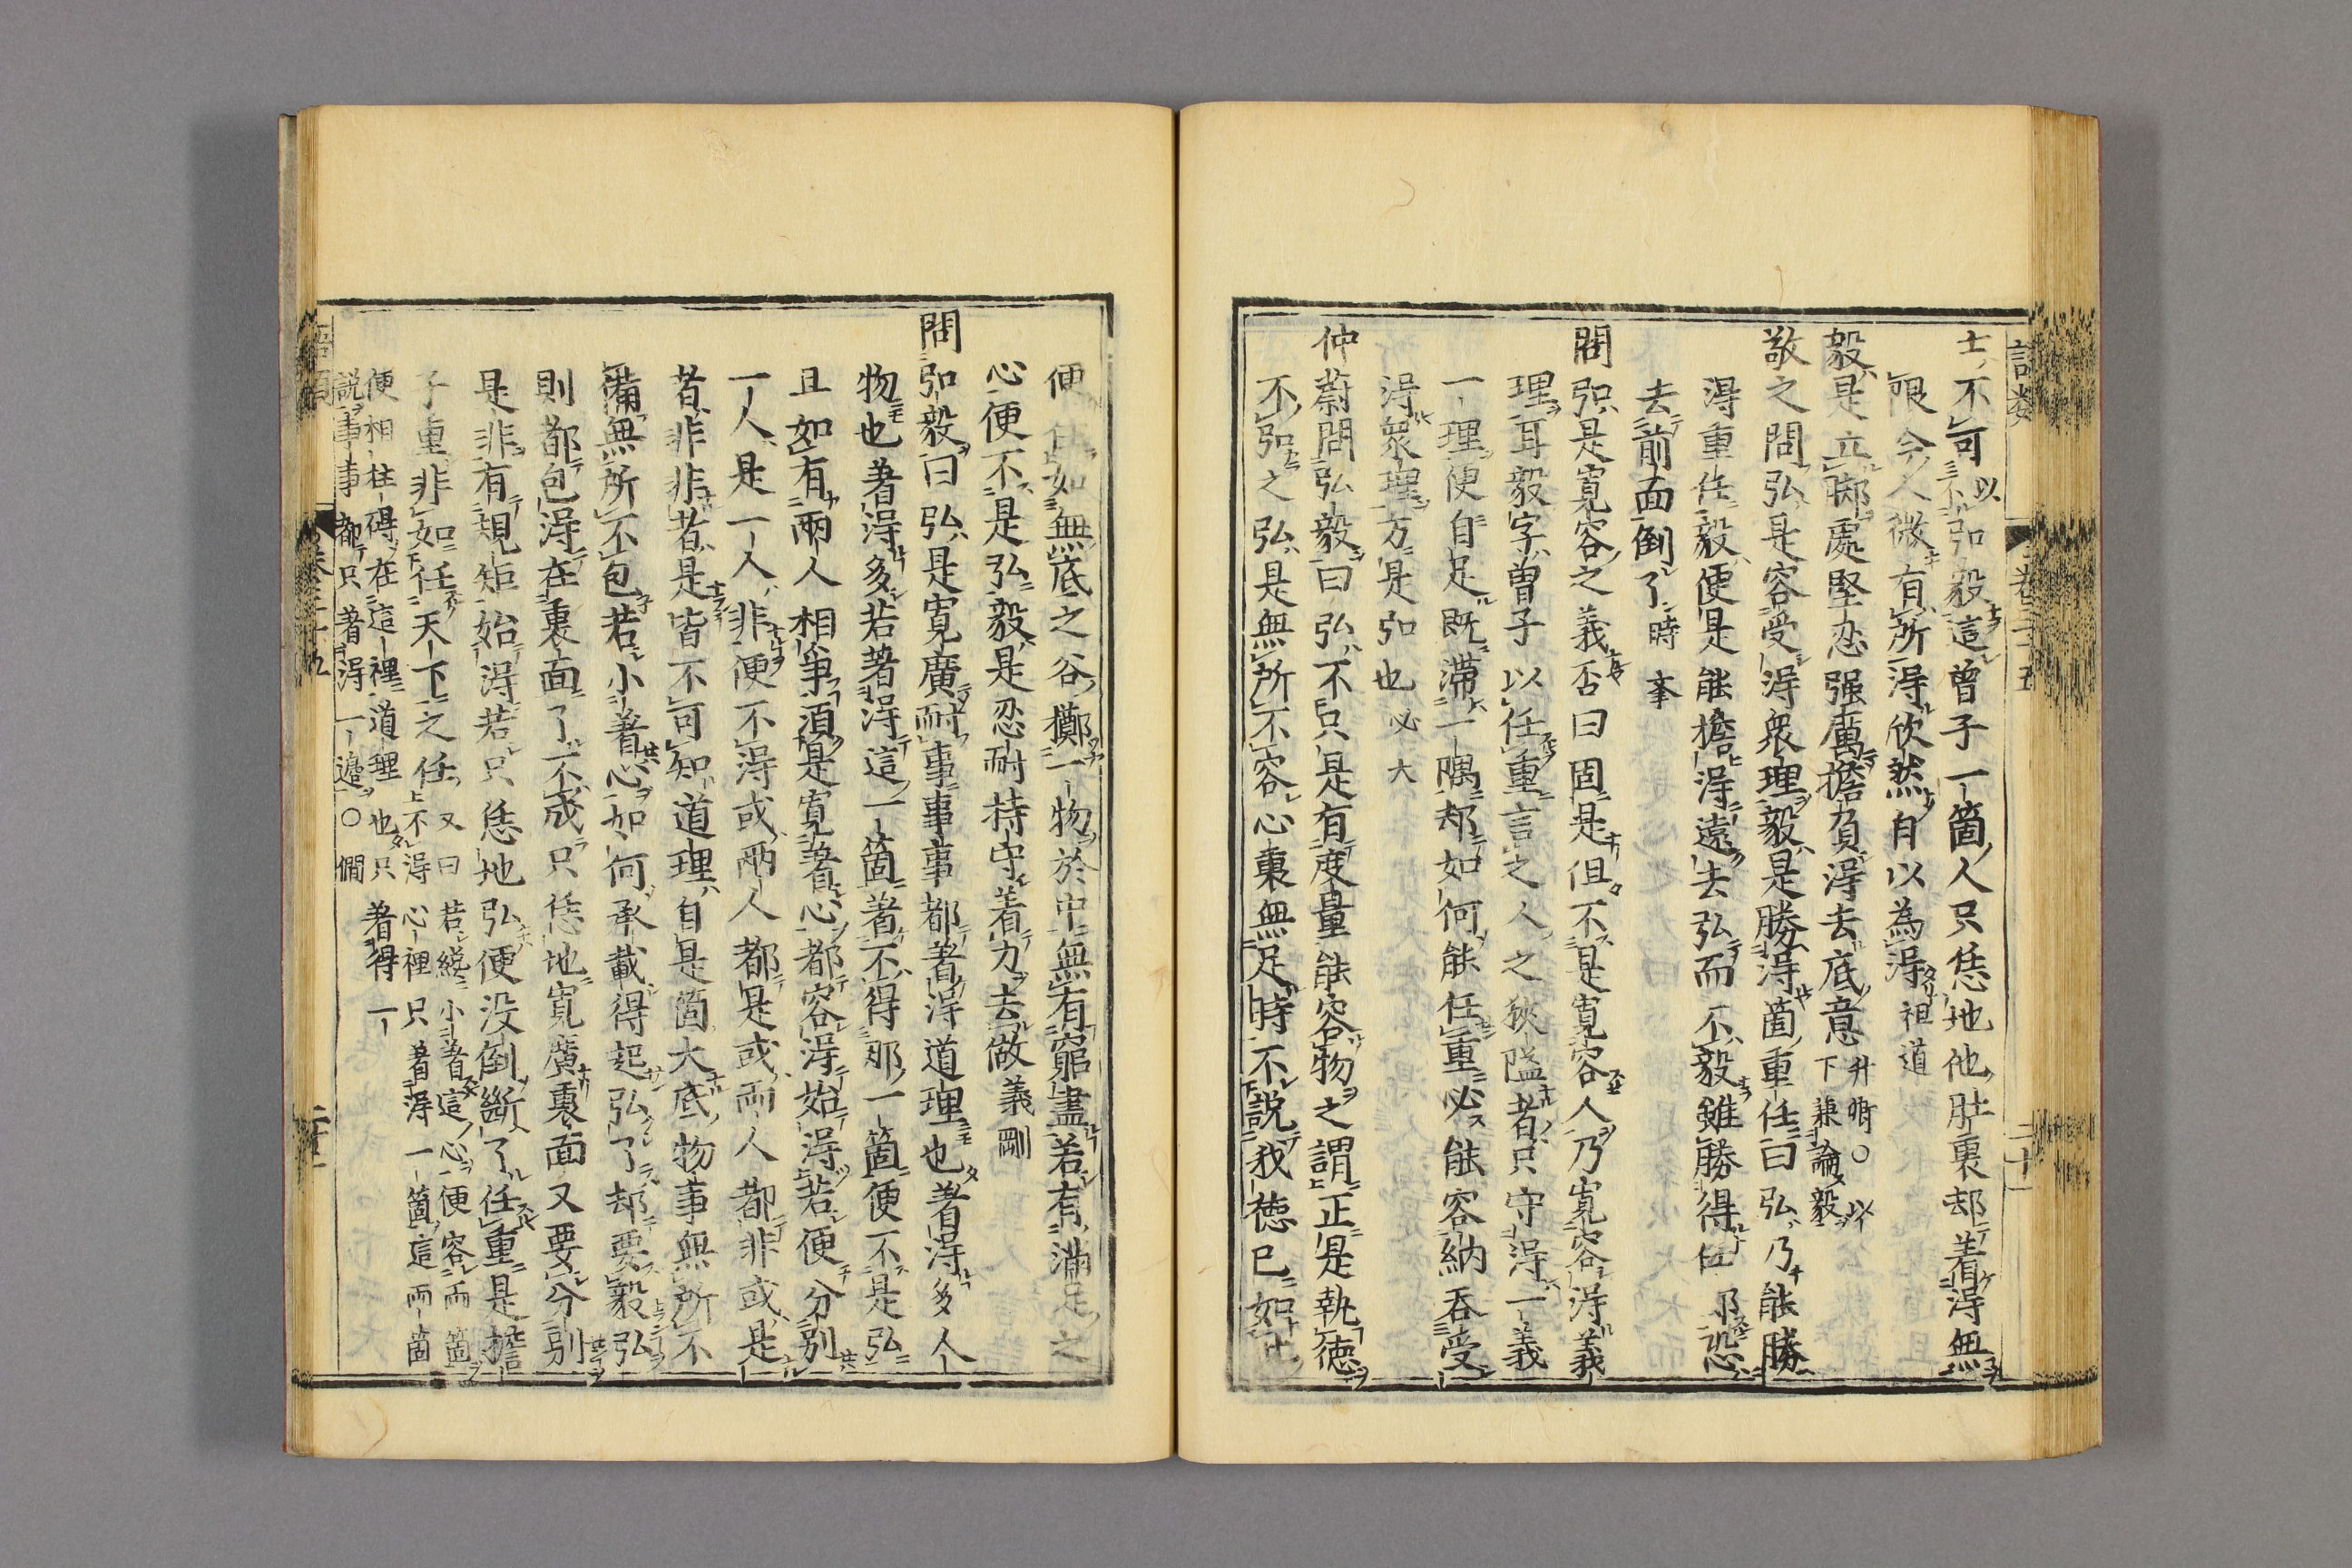 語類
卷三十五
二十一
士不可以不弘毅這曾子一箇人只恁地他肚裏却着得無
限今人微有所得欣然自以為得祖道
毅是立脚處堅忍强厲擔負得去底意升卿○以下兼論毅
敬之問弘是容受得衆理毅是勝得箇重任曰弘乃能勝
得重任毅便是能擔得遠去弘而不毅雖勝得任却恐
去前面倒了時舉
問弘是寛容之義否曰固是但不是寛容人乃寛容得義
理耳毅字曾子以任重言之人之狹隘者只守得一義
一理便自足既滯一隅却如何能任重必能容納吞受
得衆理方是弘也必大
仲蔚問弘毅曰弘不只是有度量能容物之謂正是執德
不弘之弘是無所不容心裏無足時不說我德已如此
便住如無底之谷擲一物於中無有窮盡若有滿足之
心便不是弘毅是忍耐持守着力去做義剛
問弘毅曰弘是寛廣耐事事事都著得道理也著得多人
物也著得多若著得這一箇著不得那一箇便不是弘
且如有兩人相爭須是寛著心都容得始得若便分别
一人是一人非便不得或兩人都是或兩人都非或是
者非非者是皆不可知道理自是箇大底物事無所不
備無所不包若小著心如何承載得起弘了却要毅弘
則都包得在裏面了不成只恁地寛廣裏面又要分别
是非有規矩始得若只恁地弘便没倒斷了任重是擔
子重非如任天下之任又曰若纔小著這心便容兩箇
不得心裡只著得一箇這兩箇
便相柱碍在這裡道理也只著得一
說事事都只著得一邊○僩
語類
卷三十五